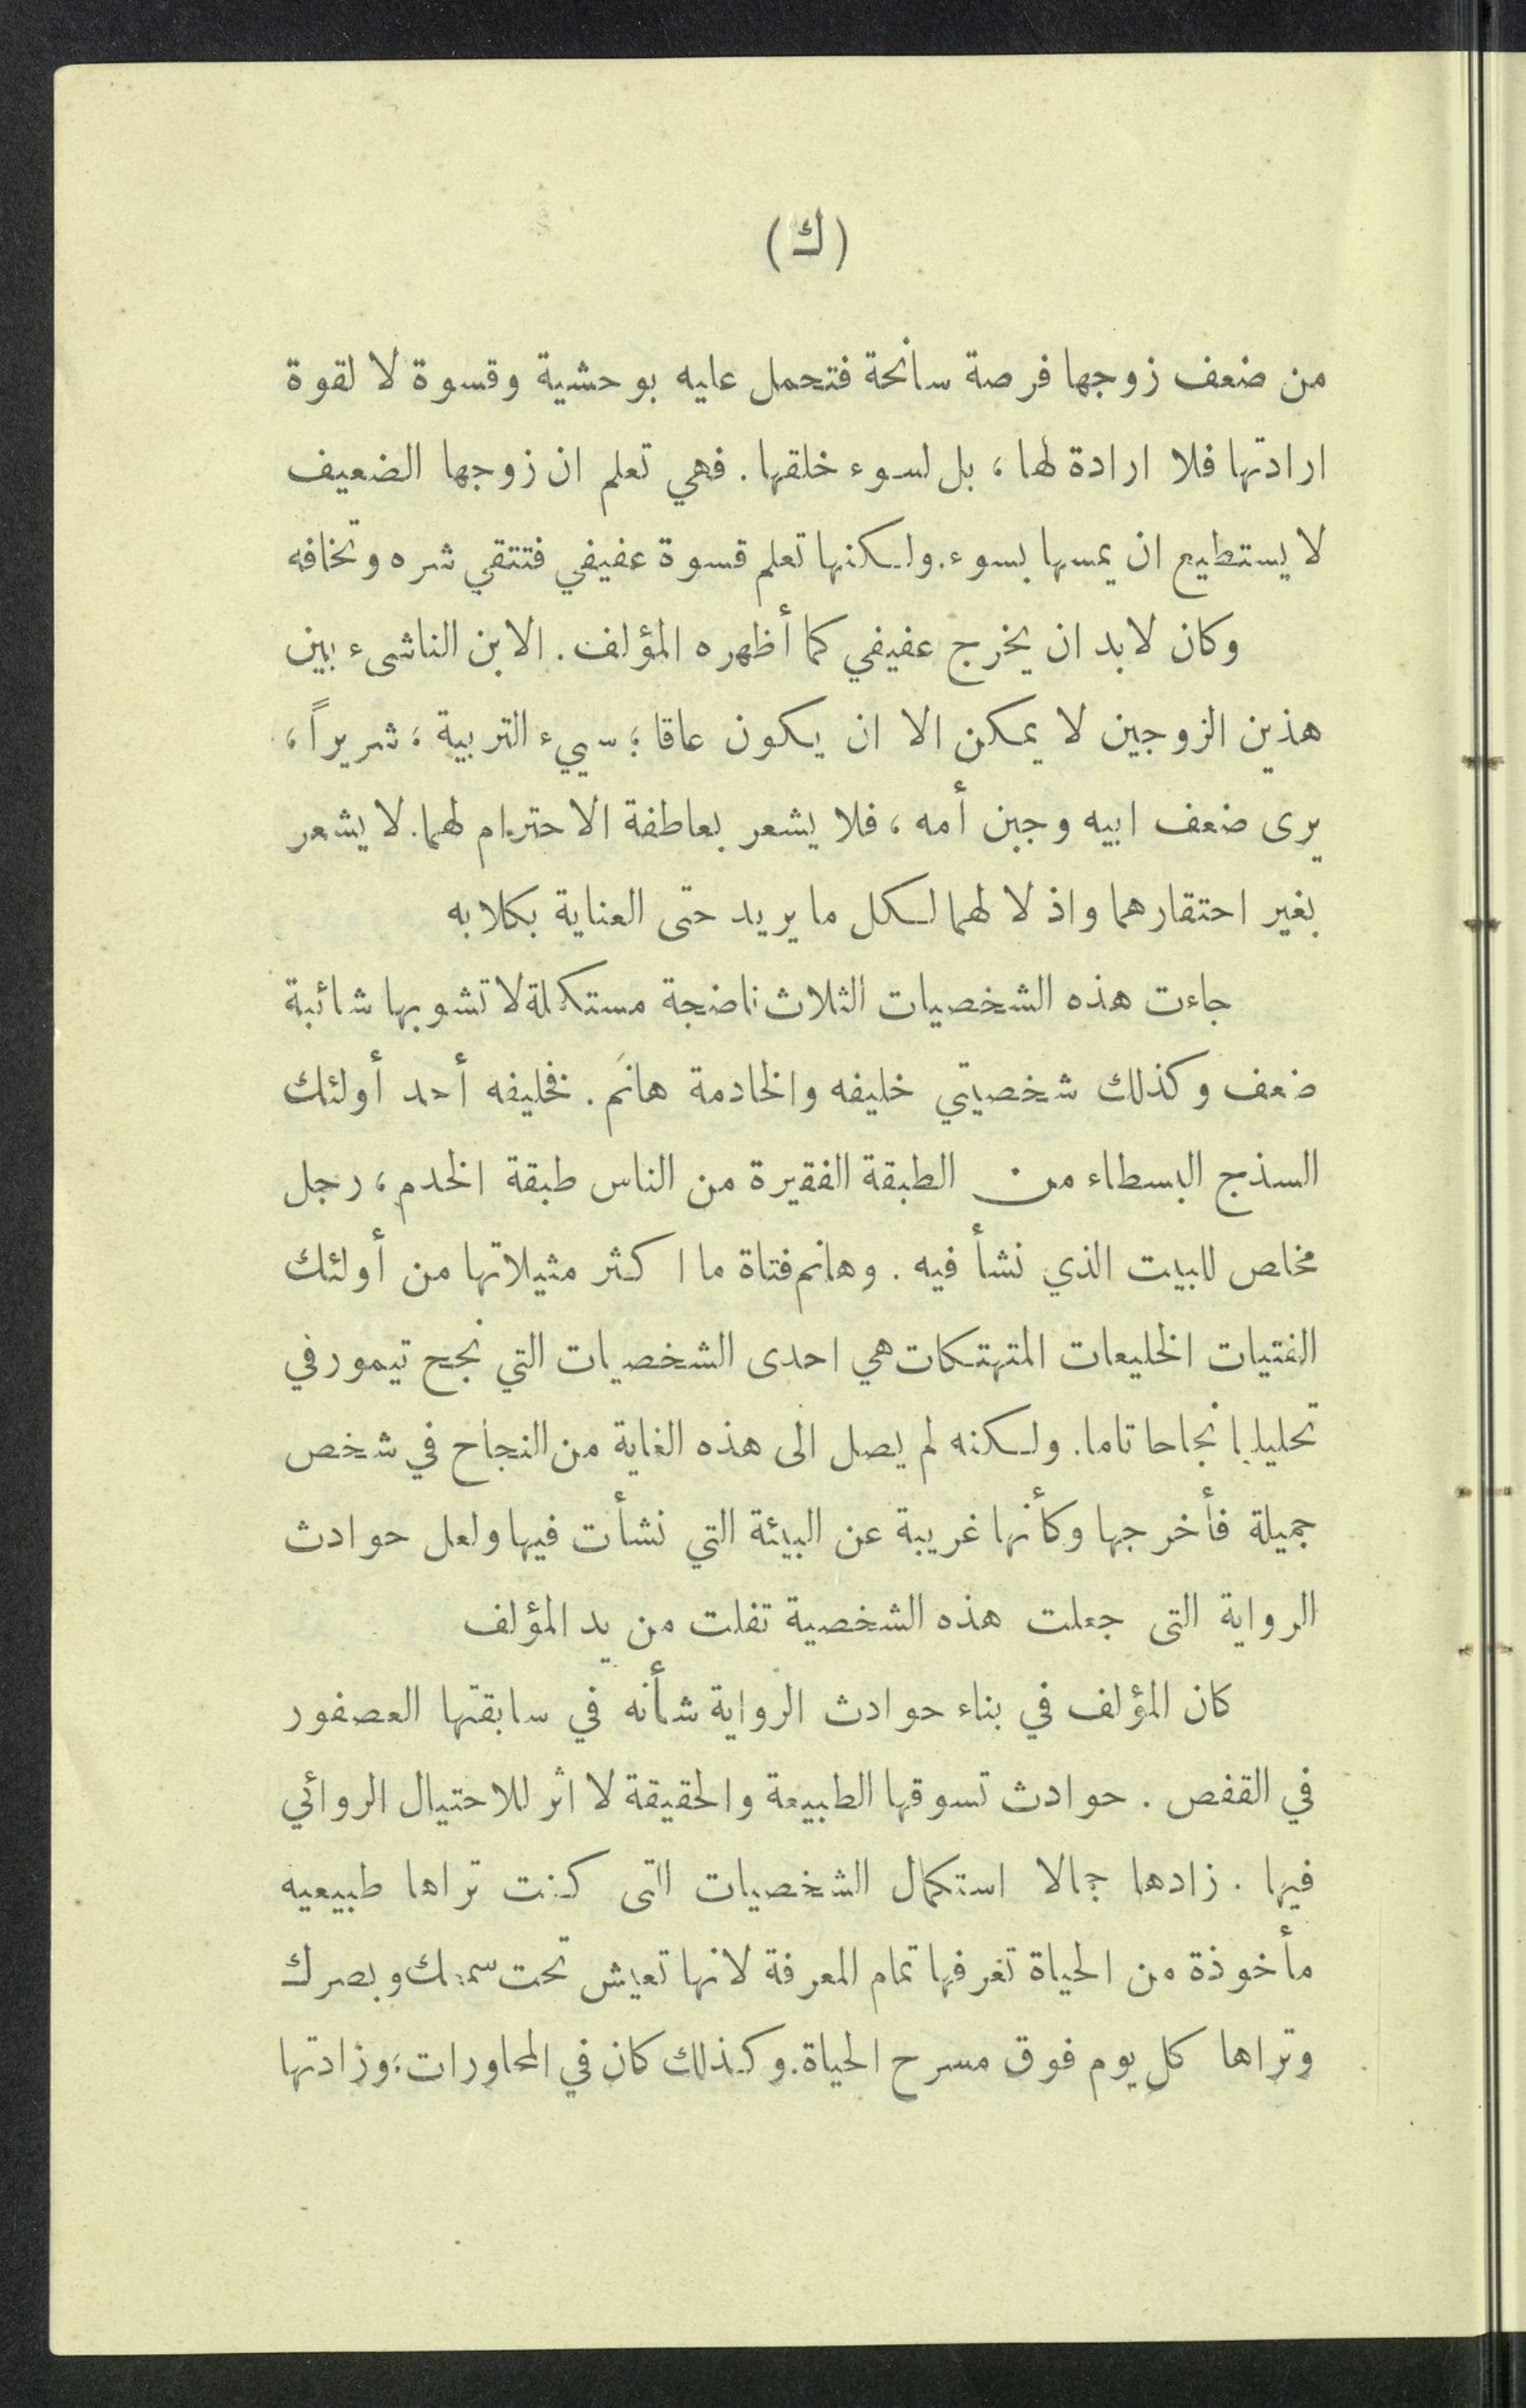 (ك)
من ضعف زوجها فرصة سانحة فتحمل عليه بوحشية وقسوة لا لقوة
ارادتها فلا ارادة لها ، بل لسوء خلقها . فهي تعلم ان زوجها الضعيف
لا يستطيع ان يمسها بسوء. ولكنها تعلم قسوة عفيفي فتتقي شره وتخافه
وكان لابد ان يخرج عفيفي كما أظهره المؤلف . الابن الناشىء بين
هذين الزوجين لا يمكن الا ان يكون عاقا ؛ سييء التربية ، شريراً ،
يرى ضعف ابيه وجبن أمه ، فلا يشعر بعاطفة الاحترام لهما. لا يشعر
بغير احتقارهما واذ لا لهما لكل ما يريد حتى العناية بكلابه
جاءت هذه الشخصيات الثلاث ناضجة مستكملة لا تشوبها شائبة
ضعف وكذلك شخصيتي خليفه والخادمة هانم . فخليفه أحد أولئك
السذج البسطاء من الطبقة الفقيرة من الناس طبقة الخدم ، رجل
مخلص للبيت الذي نشأ فيه . وهانم فتاة ما اكثر مثيلاتها من أولئك
الفتيات الخليعات المتهتكات هي احدى الشخصيات التي نجح تيمور في
تحليلها نجاحا تاما . ولكنه لم يصل الى هذه الغاية من النجاح في شخص
جميلة فأخرجها وكأنها غريبة عن البيئة التي نشأت فيها ولعل حوادث
الرواية التى جعلت هذه الشخصية تفلت من يد المؤلف
كان المؤلف في بناء حوادث الرواية شأنه في سابقتها العصفور
في القفص . حوادث تسوقها الطبيعة والحقيقة لا اثر للاحتيال الروائي
فيها . زادها جمالا استكمال الشخصيات التى كنت تراها طبيعيه
مأخوذة من الحياة تعرفها تمام المعرفة لانها تعيش تحت سمعك وبصرك
وتراها كل يوم فوق مسرح الحياة. وكذلك كان في المحاورات ، وزادتها